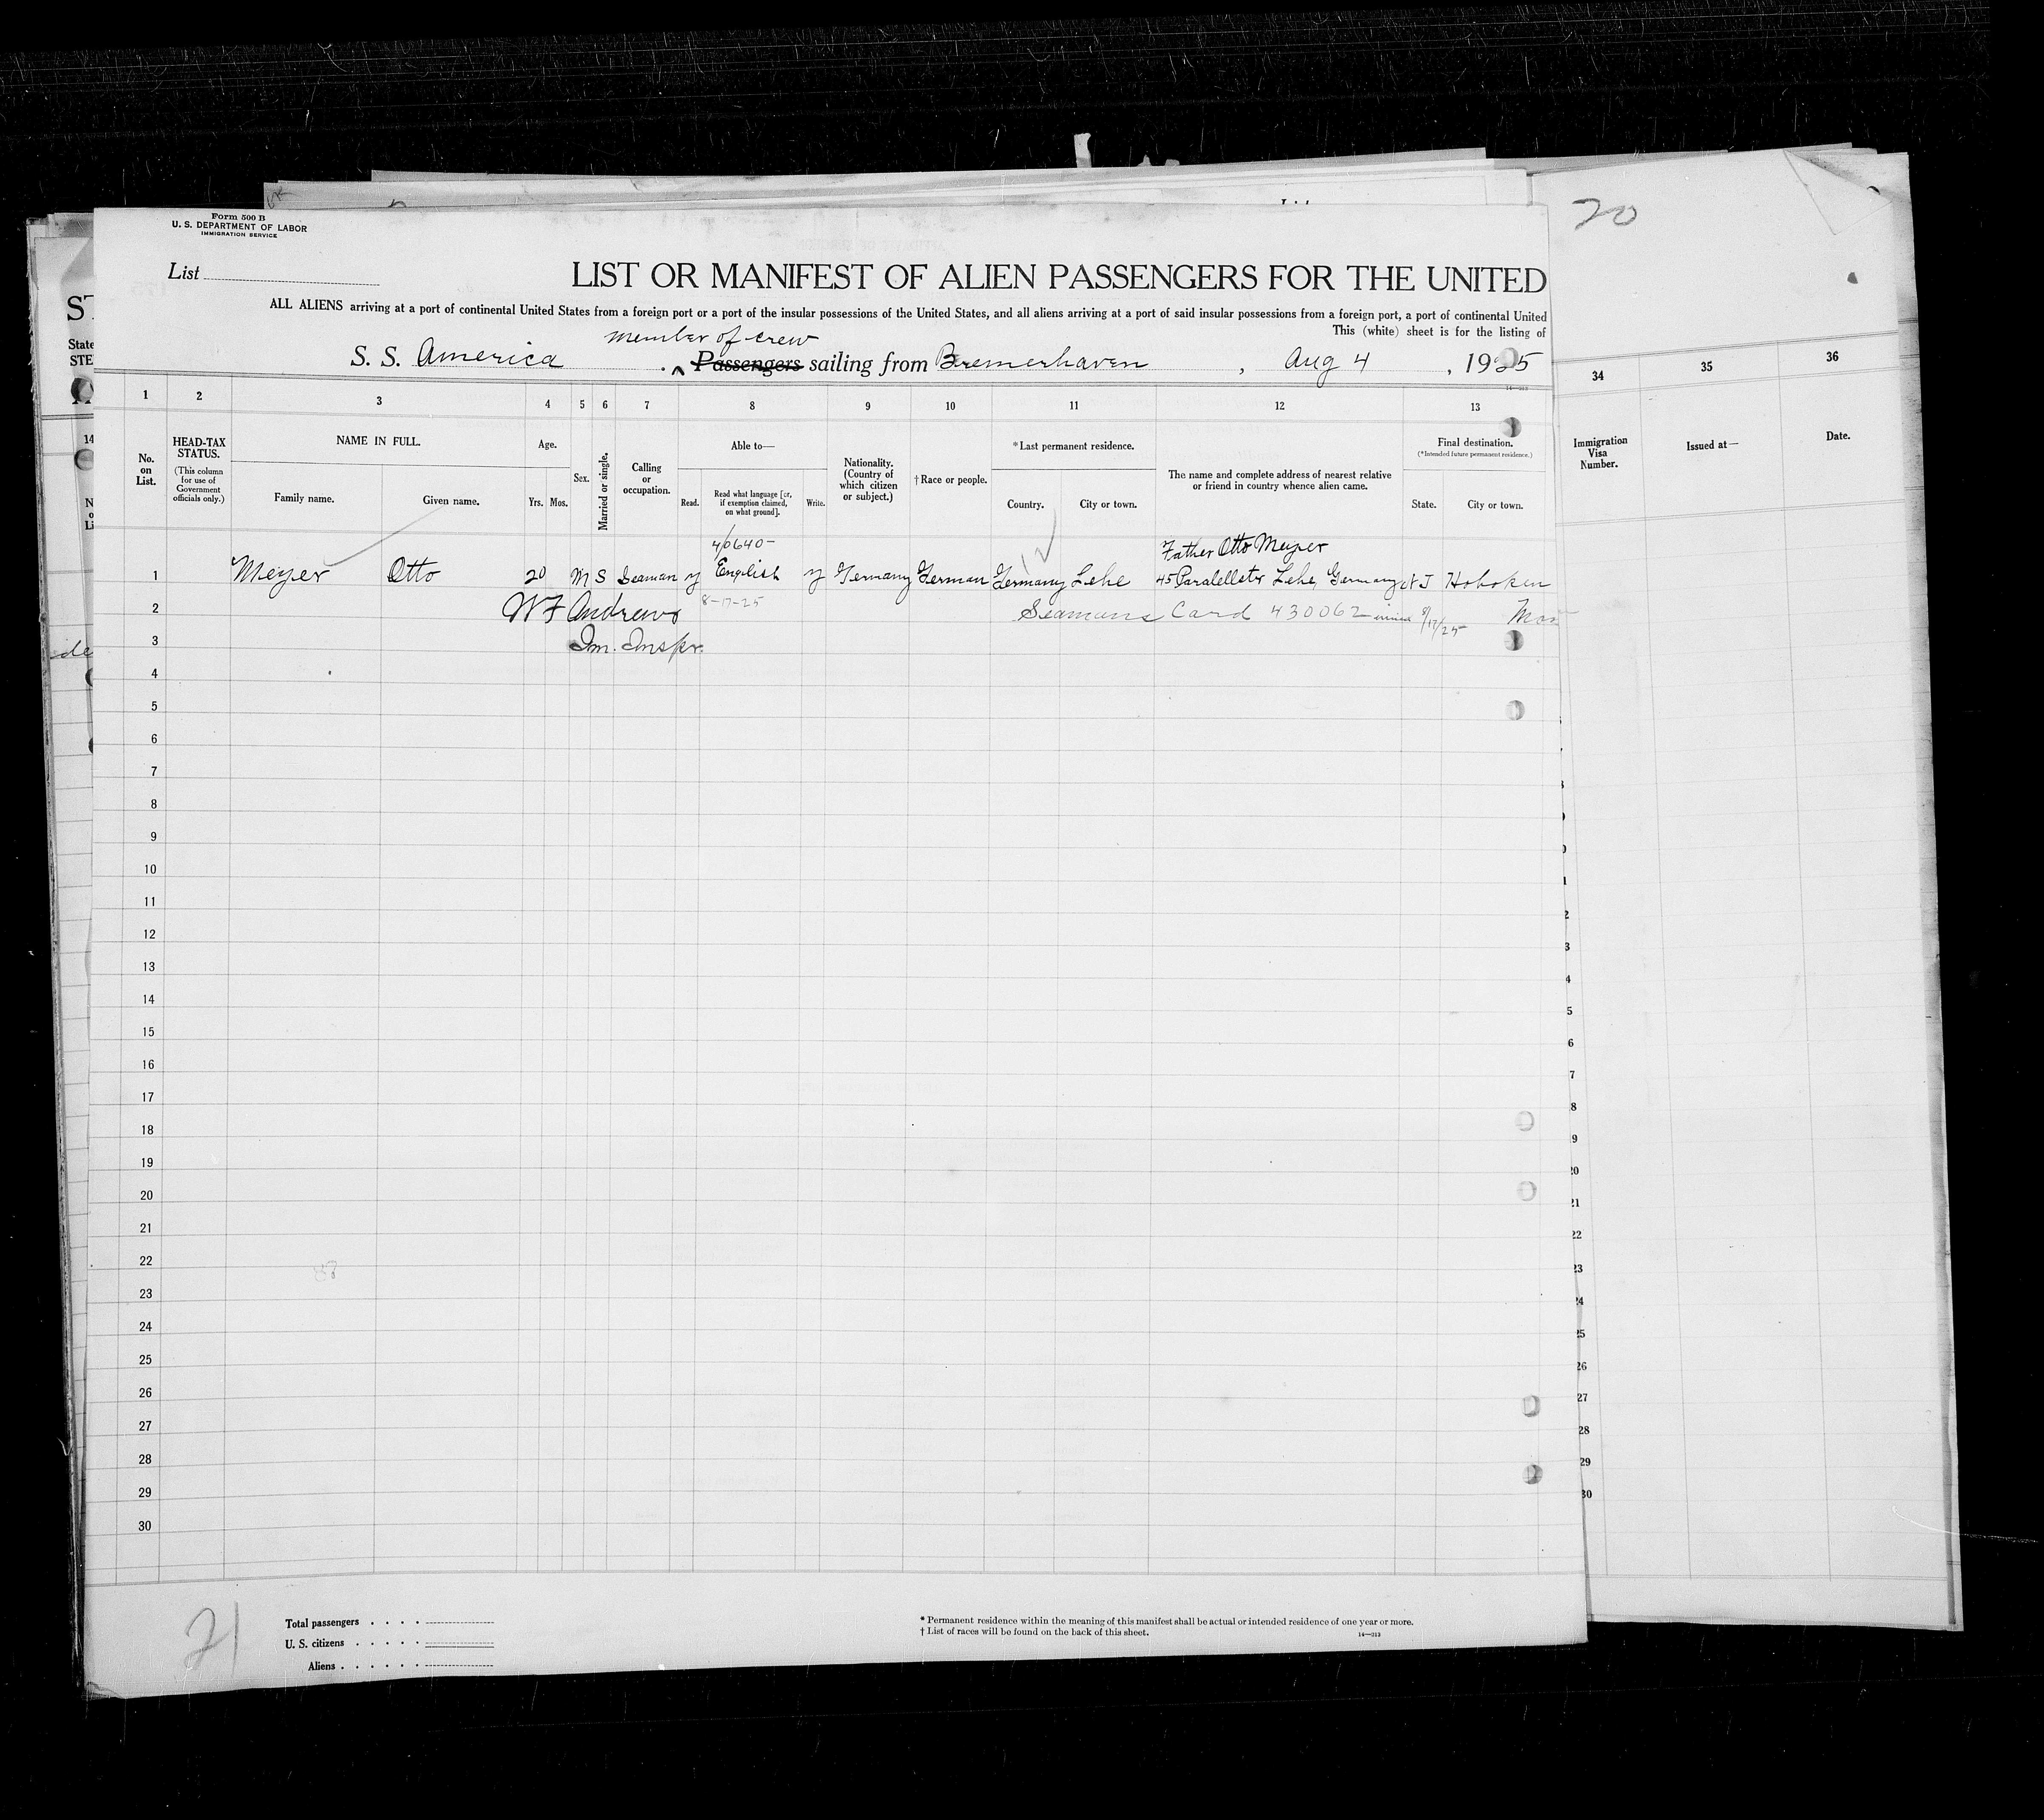 Form 500 B
U. S. DEPARTMENT OF LABOR
IMMIGRATION SERVICE
20
List
LIST OR MANIFEST OF ALIEN PASSENGERS FOR THE UNITED
ALL ALIENS arriving at a port of continental United States from a foreign port or a port of the insular possessions of the United States, and all aliens arriving at a port of said insular possessions from a foreign port, a port of continental United
This (white) sheet is for the listing of
member of crew
S. S. America Passengers sailing from Bremerhaven, Aug 4, 1925
1 2 3 4 5 6 7 8 9 10 11 12 13 34 35 36
No. on List.
HEAD-TAX STATUS.
(This column for use of Government officials only.)
NAME IN FULL.
Family name. Given name.
Age.
Yrs. Mos.
Sex.
Married or single.
Calling or occupation.
Able to—
Read. Read what language [or, if exemption claimed, on what ground]. Write.
Nationality. (Country of which citizen or subject.)
†Race or people.
*Last permanent residence.
Country. City or town.
The name and complete address of nearest relative or friend in country whence alien came.
Final destination.
(*Intended future permanent residence.)
State. City or town.
Immigration Visa Number.
Issued at—
Date.
4/0640-
Father Otto Meyer
1 Meyer Otto 20 M S Seaman y English y Germany German Germany Lehe 45 Paralellstr Lehe, Germany N J Hoboken
2 W F Andrews 8-17-25 Seamans Card 430062 8/17/25
3 Im. Inspr.
4
5
6
7
8
9
10
11
12
13
14
15
16
17
18
19
20
21
22
23
24
25
26
27
28
29
30
21
Total passengers
U. S. citizens
Aliens
* Permanent residence within the meaning of this manifest shall be actual or intended residence of one year or more.
† List of races will be found on the back of this sheet.
14—313